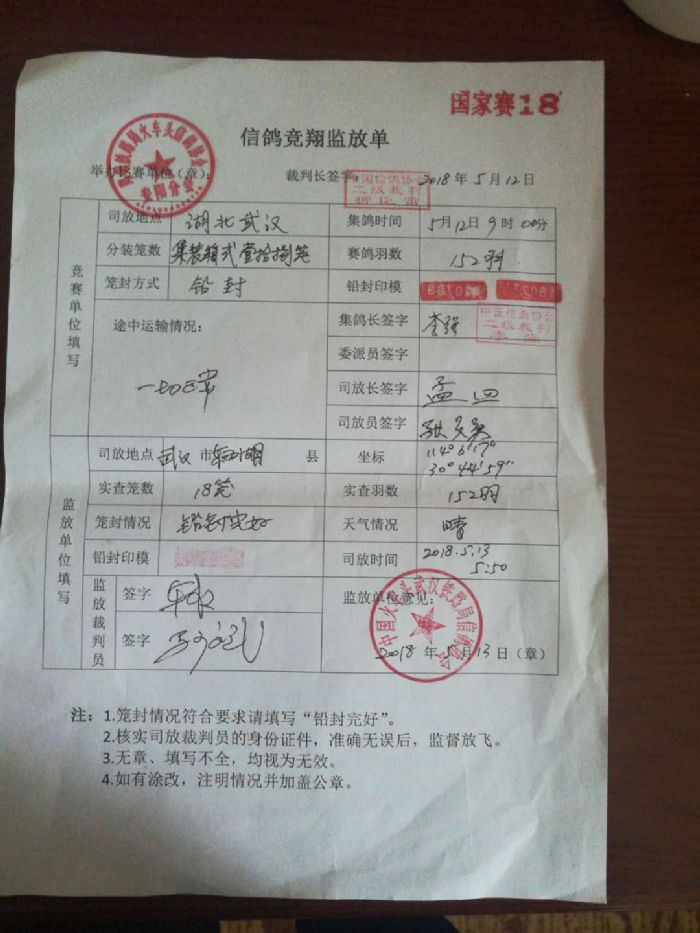 国家赛18
信鸽竞翔监放单
举办比赛单位（章）： 裁判长签字： 2018年5月12日
中国信鸽协会
二级裁判
竞赛单位填写
司放地点 湖北武汉 集鸽时间 5月12日9时00分
分装笼数 集装箱式壹拾捌笼 赛鸽羽数 152羽
笼封方式 铅封 铅封印模
途中运输情况： 集鸽长签字 李强
中国信鸽协会
二级裁判
李强
一切正常 委派员签字
司放长签字 孟
司放员签字 张
监放单位填写
司放地点 武汉市 湖 县 坐标 114°6′17″
30°44′59″
实查笼数 18笼 实查羽数 152羽
笼封情况 铅封完好 天气情况 晴
铅封印模 司放时间 2018.5.13
5:50
监放裁判员
签字 监放单位意见：
签字
中国火车头武汉铁路局信鸽协会
2018年5月13日（章）
注：1.笼封情况符合要求请填写“铅封完好”。
2.核实司放裁判员的身份证件，准确无误后，监督放飞。
3.无章、填写不全，均视为无效。
4.如有涂改，注明情况并加盖公章。